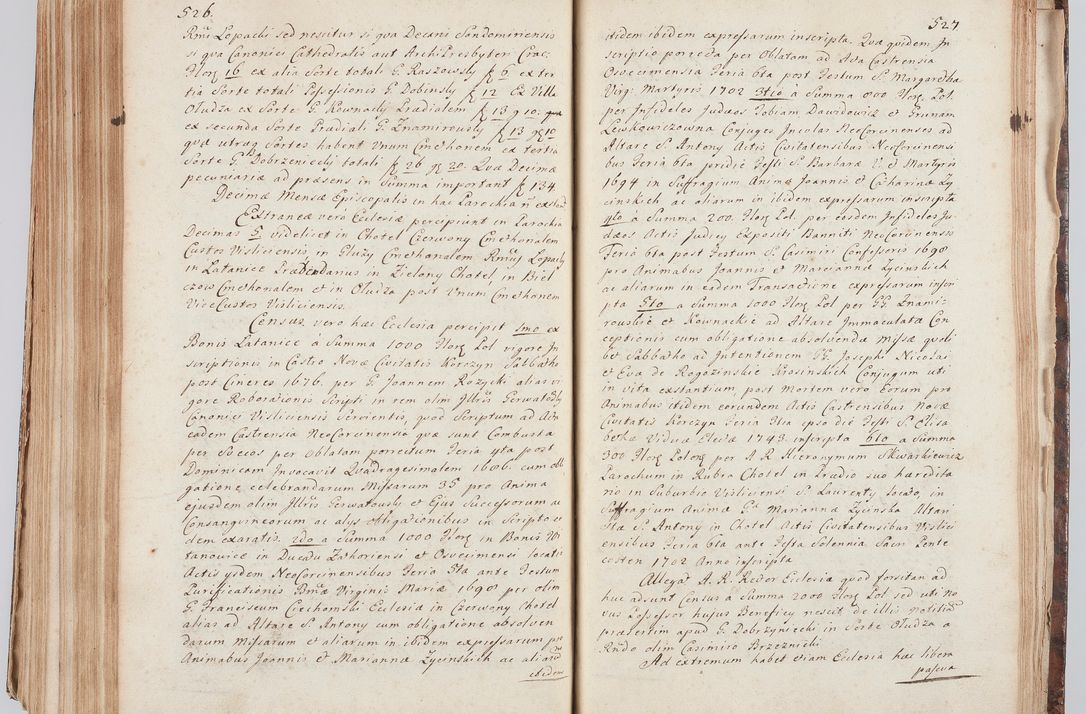 526.
Rmi Lopacki sed nescitur si qva Decani Sandomiriensis
si qva Canonici Cathedralis aut ArchiPresbyter Crac:
Flor 16 ex alia Sorte totali G. Raszowsky f 6 ex ter
tia Sorte totali Possessionis G. Dobinsky f 12 Ex Villa
Oludza ex Sorte G. Kownacky Prædialem f 13 g 10: qva
ex secunda Sorte Prædiali G. Znamirowsky f 13 gr 10
qvæ utraq Sortes habent Vnum Cmethonem ex tertia
Sorte G. Dobrzeniecky totali f 26 gr 20. Qvæ Decimæ
pecuniariæ ad præsens in Summa important f 134.
Decimæ Mensæ Episcopalis in hac Parochia
Extraneæ vero Ecclesiæ percipiunt in Parochia
Decimas videlicet in Chotel Czerwony Cmethonalem
Custos Visliciensis in Cmethonalem Rmus Lopacky
in Latanice Præbendarius in Zielony Chotel, in Biel
czow Cmethonalem et in Oludza post Vnum Cmethonem
ViceCustos Visliciensis.
Census vero hæc Ecclesia percipit 1mo ex
Bonis Latanice à Summa 1000 Flor Pol vigore In
scriptionis in Castro Novæ Civitatis Korczyn Sabbatho
post Cineres 1676. per G. Joannem Rozycki alias vi
gore Roborationis Scripti in rem olim Illris Gerwatowsky
Canonici Visliciensis Servientis, quod Scriptum ad Acta
eadem Castrensia NeoCorcinensia qvæ sunt Combusta
per Suecos per Oblatam porrectum Feria 4ta post
Dominicam Invocavit Qvadragesimalem 1686. cum obli
gatione celebrandarum Missarum 35 pro Anima
ejusdem olim Illris Gerwatowsky et Ejus Successorum ac
Consangvineorum ac alys obligationibus in Scripto eo
dem exaratis. 2do a Summa 1000 Flor in Bonis Bo
tanowice in Ducatu Zathoriensi et Osvecimensi locatis
Actis ysdem NeoCorcinensibus Feria 5ta ante Festum
Purificationis Bmæ Virginis Mariæ 1690 per olim
G. Franciscum Ciechomski Ecclesiæ in Czerwony Chotel
alias ad Altare S. Antony cum obligatione absolven
darum Missarum et aliarum in ibidem expressarum pro
Animabus Joannis et Mariannæ Zycinskich ac aliarum
ibidem
527
itidem ibidem expressarum inscripta. Qva qvidem In
scriptio porrecta per Oblatam ad Acta Castrensia
Osvecimensia Feria 6ta post Festum S. Margarethæ
Virg: Martyris 1702 3tio à Summa 800 Flor Pol.
per Infideles Judæos Tobiam Dawidowicz et Prunam
Lewkowiczowna Conjuges Incolas NeoCorcinenses ad
Altare S. Antony Actis Civitatensibus NeoCorcinensi
bus Feria 6ta pridie Festi S. Barbaræ V. et Martyris
1694 in Suffragium Animæ Joannis et Catharinæ Zy
cinskich ac aliarum in ibidem expressarum inscripta
4to à Summa 200. Flor Pol. per eosdem Infideles Ju
dæos Actis Judicy Expositi Banniti NeoCorcinensis
Feria 6ta post Festum S. Casimiri Confessoris 1698
pro Animabus Joannis et Mariannæ Zycinskich
ac aliarum in eadem Transactione expressarum inscri
pta 5to a Summa 1000 Flor Pol per GG Znami
rowskie et Kownackie ad Altare Immaculatæ Con
ceptionis cum obligatione absolvendæ Missæ qvoli
bet Sabbatho ad Intentionem GG Josephi Nicolai
et Eva de Rogozinskie Krosinskich Conjugum uti
in vita extantium, post Mortem vero Eorum pro
Animabus itidem eorundem Actis Castrensibus Novæ
Civitatis Korczyn Feria 3tia ipso die Festi S. Elisa
bethæ Viduæ Electæ 1743. inscripta 6to à Summa
300 Flor Polon per A R Hieronymum Skwarkiewicz
Parochum in Rubro Chotel in Prædio suo haredita
rio in Suburbio Visliciensi S. Laurenty locato, in
Suffragium Animæ Gæ Mariannæ Zycinska Altari
Stæ S. Antony in Chotel Actis Civitatensibus Vislici
ensibus Feria 6ta ante Festa Solennia Sacri Pente
costen 1702 Anno inscripta
Allegat A. R. Rector Ecclesiæ quod forsitan ad
huc adsunt Census à Summa 2000 Flor Pol sed uti No
vus Possessor hujus Beneficy nescit de illis notitiam
præsertim apud G. Dobrzyniecki in Sorte Oludza a
Rndo olim Casimiro Brzeznicki
Ad extremum habet etiam Ecclesia hæc libera
pascua